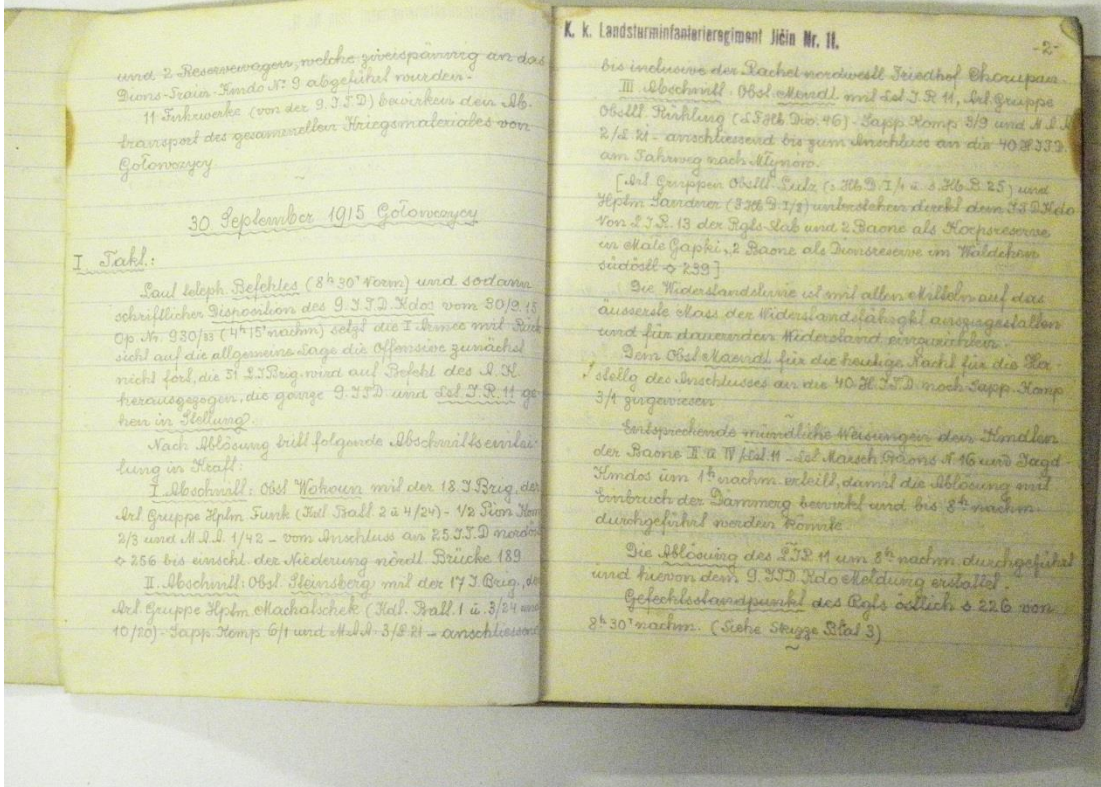 und 2 Reservewagen, welche zweispännig an das
Dions-Train-Kmdo Nº 9 abgeführt wurden.
11 Fuhrwerke (von der 9. I T D) bewirken den Ab-
transport des gesammelten Kriegsmateriales von
Gołowczycy.
30 September 1915 Gołowczycy
I Takt.:
Laut teleph. Befehles (8ʰ30' Vorm) und sodann
schriftlicher Disposition des 9. I.T.D. Kdos vom 30/9. 15
Op Nr. 930/ (4ʰ15' nachm) setzt die I. Armee mit Rück
sicht auf die allgemeine Lage die Offensive zunächst
nicht fort, die 51. L I Brig. wird auf Befehl des A. K.
herausgezogen, die ganze 9. I T D und Lst. I. R. 11 ge
hen in Stellung.
Nach Ablösung tritt folgende Abschnittseintei-
lung in Kraft:
I Abschnitt: Obst Wohoun mit der 18. I Brig, der
Art. Gruppe Hptm Funk (Hdl Batt. 2 u 4/24) - 1/2 Pion Kom
2/3 und M.A. 1/42 - vom Anschluss an 25 I T D nordös
◇ 256 bis einschl. der Niederung nördl. Brücke 189
II. Abschnitt: Obst. Steinsberg mit der 17 I Brig, der
Art. Gruppe Hptm Machatschek (Hdl. Batt. 1 u. 3/24 und
10/20) - Sapp. Komp 6/1 und M.A. 3/L 21 - anschliessend
K. k. Landsturminfanterieregiment Jičin Nr. 11.
-2-
bis inclusive der Rachel nordwestl Friedhof Chorupan.
III Abschnitt. Obst. Mendl mit Lst I. R 11, Art. Gruppe
Obstlt. (L F Hb Div. 46) - Sapp Komp 3/9 und M. A.
2/L 21 - anschliessend bis zum Anschluss an die 40. H I T D.
am Fahrweg nach Młynow.
[Art. Gruppen Obstlt. Lutz (s Hb D. I/4 u. s. Hb B. 25) und
Hptm (F Hb D I/8) unterstehen direkt dem I T D Kdo
Von L I R. 13 der Rgts-Stab und 2 Baone als Korpsreserve
in Małe Gapki, 2 Baone als Dionsreserve im Wäldchen
südöstl ◇ 239]
Die Widerstandslinie ist mit allen Mitteln auf das
äusserste Mass der Widerstandsfähigkt auszugestalten
und für dauernden Widerstand einzurichten.
Dem Obst Maendl für die heutige Nacht für die Her
stellg des Anschlusses an die 40. H. I T D noch Sapp. Komp
3/1 zugewiesen
Entsprechende mündliche Weisungen den Kmdten
der Baone II u IV/Lst. 11 - Lst Marsch N 16 und Jagd-
Kmdos um 1ʰ nachm. erteilt, damit die Ablösung mit
Einbruch der Dämmerg bewirkt und bis 8ʰ nachm.
durchgeführt werden könnte.
Die Ablösung des L I R 11 um 8ʰ nachm. durchgeführt
und hievon dem 9. I T D Kdo Meldung erstattet.
Gefechtsstandpunkt des Rgts östlich ◇ 226 von
8ʰ30' nachm. (Siehe Skizze Blat 3)